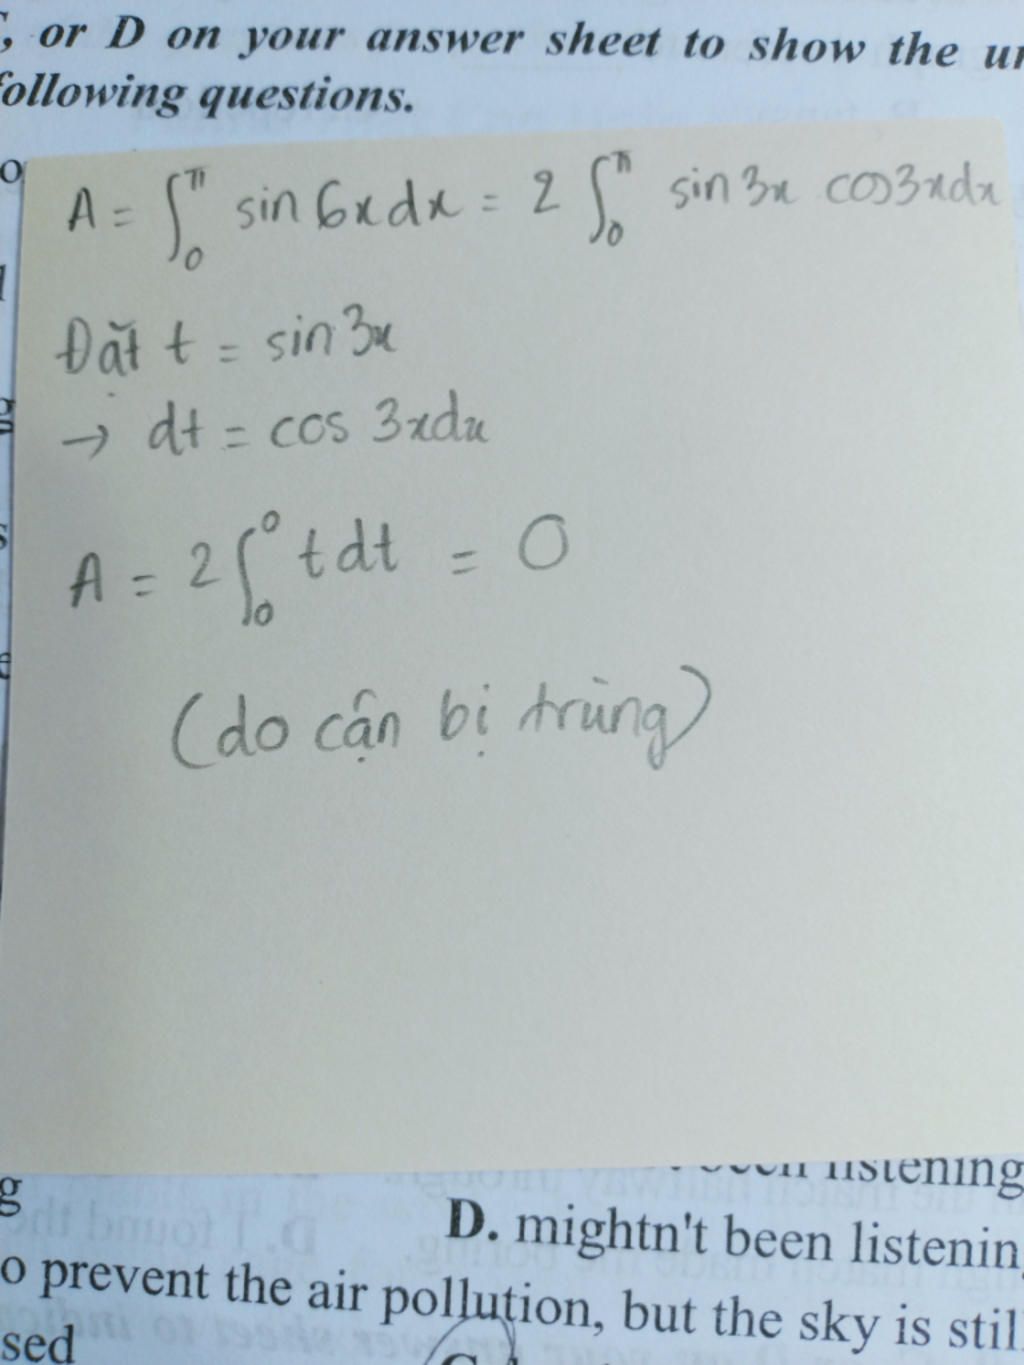 or D on your answer sheet to show the
following questions.
A = ∫₀^π sin 6x dx = 2 ∫₀^π sin 3x cos 3x dx
Đặt t = sin 3x
→ dt = cos 3x dx
A = 2 ∫₀^0 t dt = 0
(do cận bị trùng)
been listening
g
D. mightn't been listenin
o prevent the air pollution, but the sky is still
sed